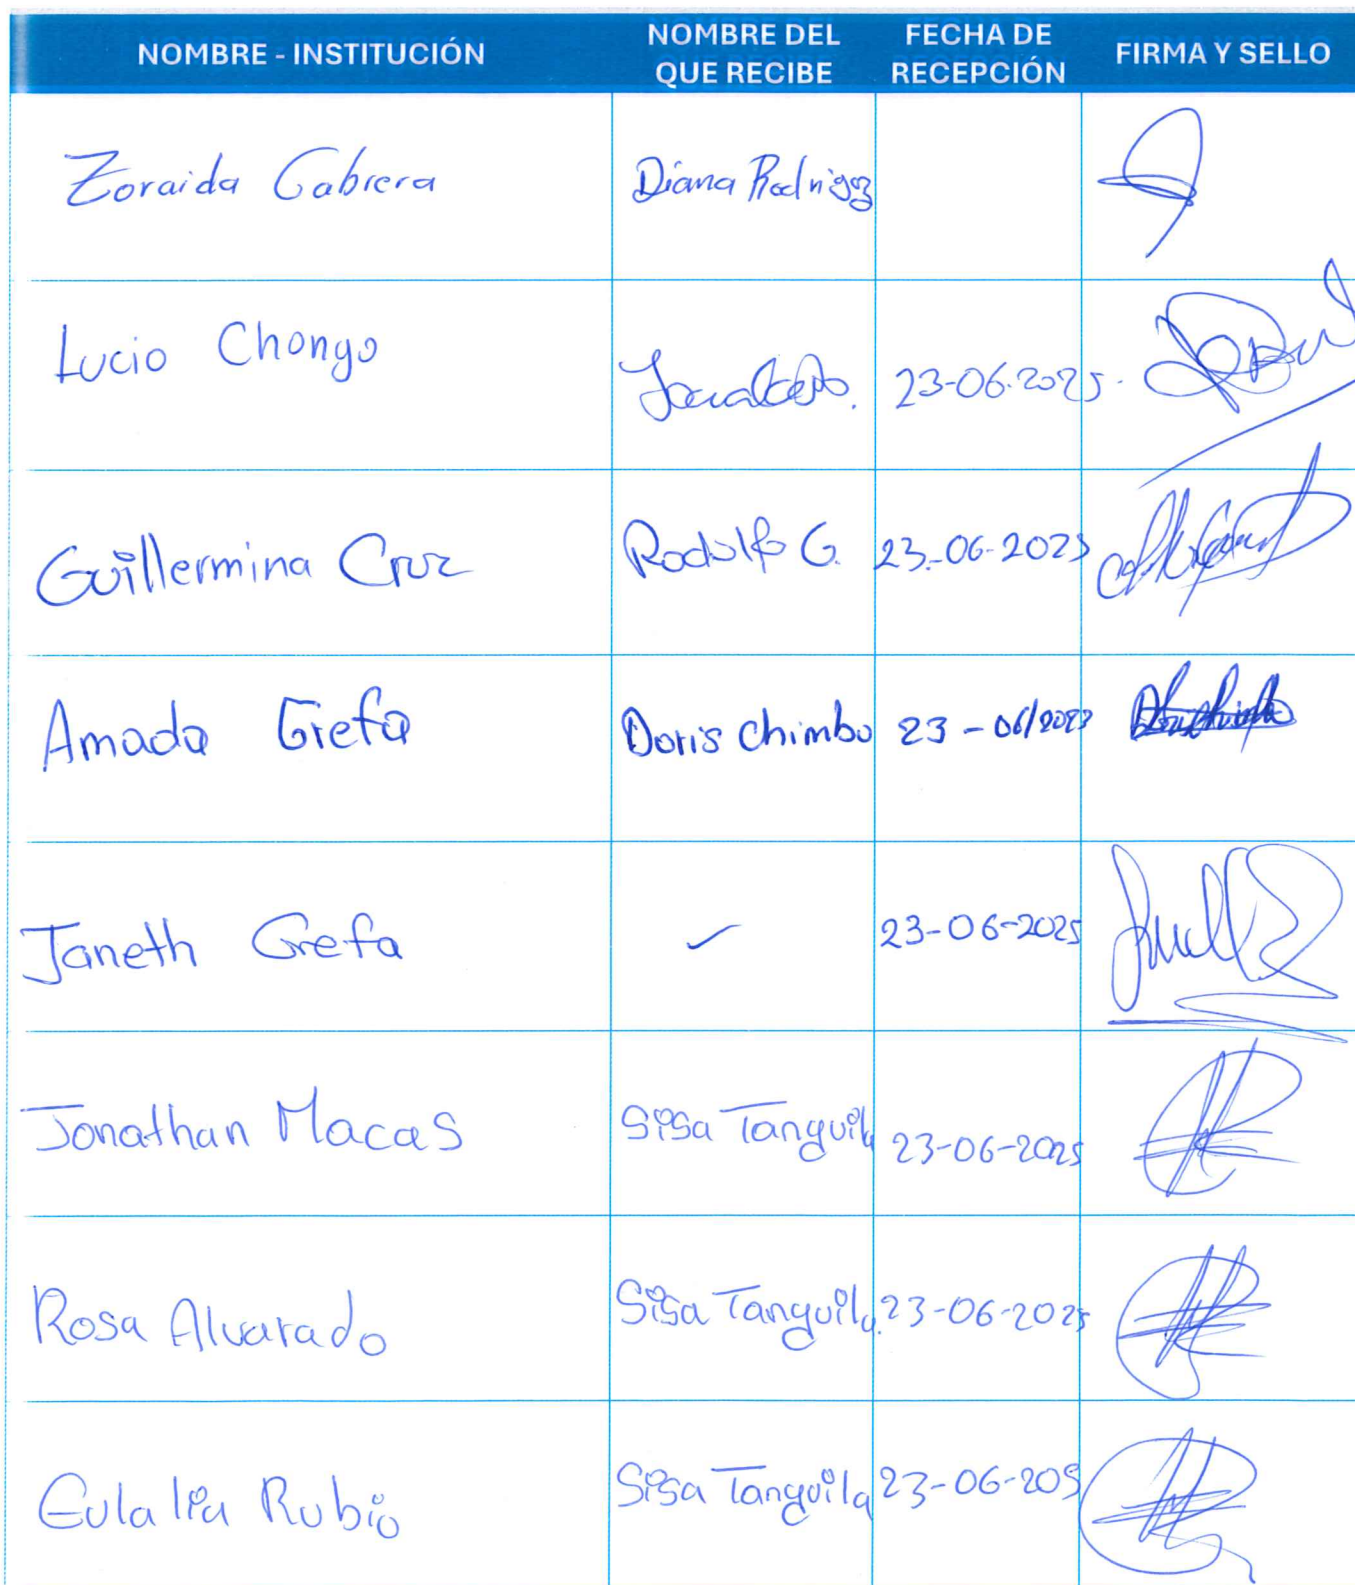 NOMBRE - INSTITUCIÓN NOMBRE DEL QUE RECIBE FECHA DE RECEPCIÓN FIRMA Y SELLO
Zoraida Cabrera Diana Rodrigez
Lucio Chongo 23-06-2025.
Guillermina Cruz Rodolfo G. 23-06-2025
Amada Grefa Doris Chimbo 23-06/2023
Janeth Grefa 23-06-2025
Jonathan Macas Sisa Tanguila 23-06-2025
Rosa Alvarado Sisa Tanguila 23-06-2025
Eulalia Rubio Sisa Tanguila 23-06-205